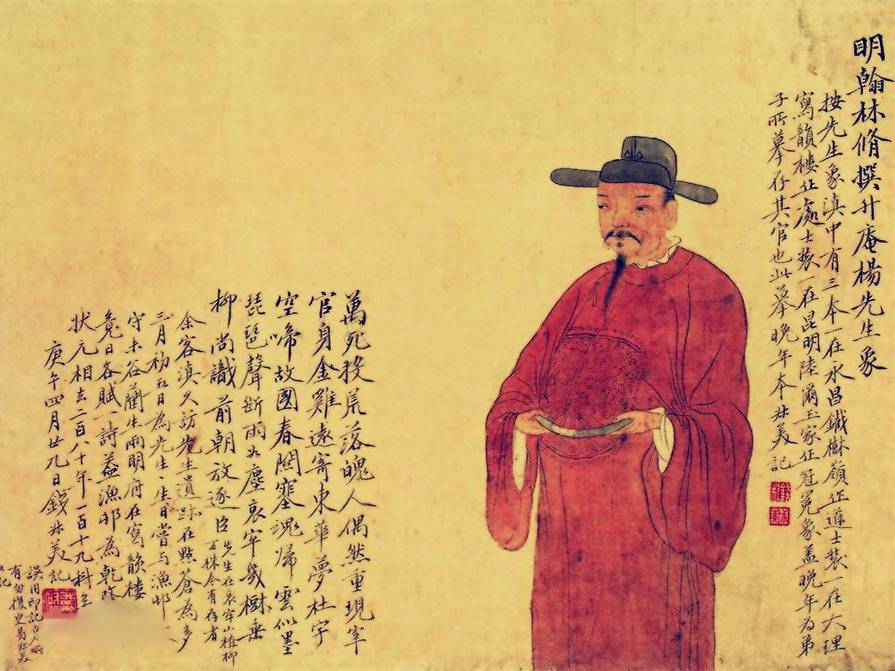 明翰林脩撰升庵楊先生象
按先生象滇中有三本一在永昌鐵樹嶺作道士裝一在大理
寫韻樓作處士裝一在昆明陸爾玉家作冠冕象蓋晚年為弟
子所摹存其官也此摹晚年本叔美記
萬死投荒落魄人偶然重現宰
官身金雞遠寄東華夢杜宇
空啼故國春關塞魂歸雲似墨
琵琶聲斷雨如塵哀牢幾樹垂
柳尚識前朝放逐臣
先生在哀牢山植柳
萬株今有存者
余客滇久訪先生遺跡在點蒼為多
三月初五日為先生生日嘗與漁邨
守未谷藺生兩明府在寫韻樓
竟日各賦一詩蓋漁邨為乾隆
狀元相去二百八十年一百十九科矣
庚午四月廿九日錢叔美記
誤用印記古人所
有勿後
記